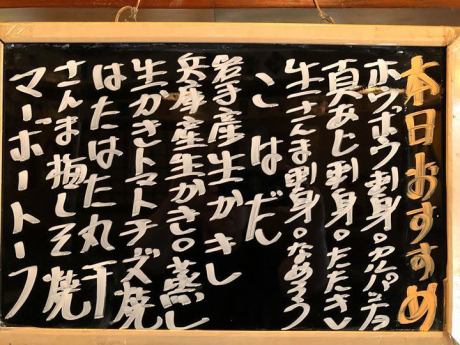 本日おすすめ
ホウボウ刺身。カルパッチョ
真あじ刺身。たたき
生さんま刺身。なめろう
こはだ
岩手産生かき
兵庫産生かき。蒸し
生かきトマトチーズ焼
はたはた丸干
さんま梅しそ焼
マーボートーフ